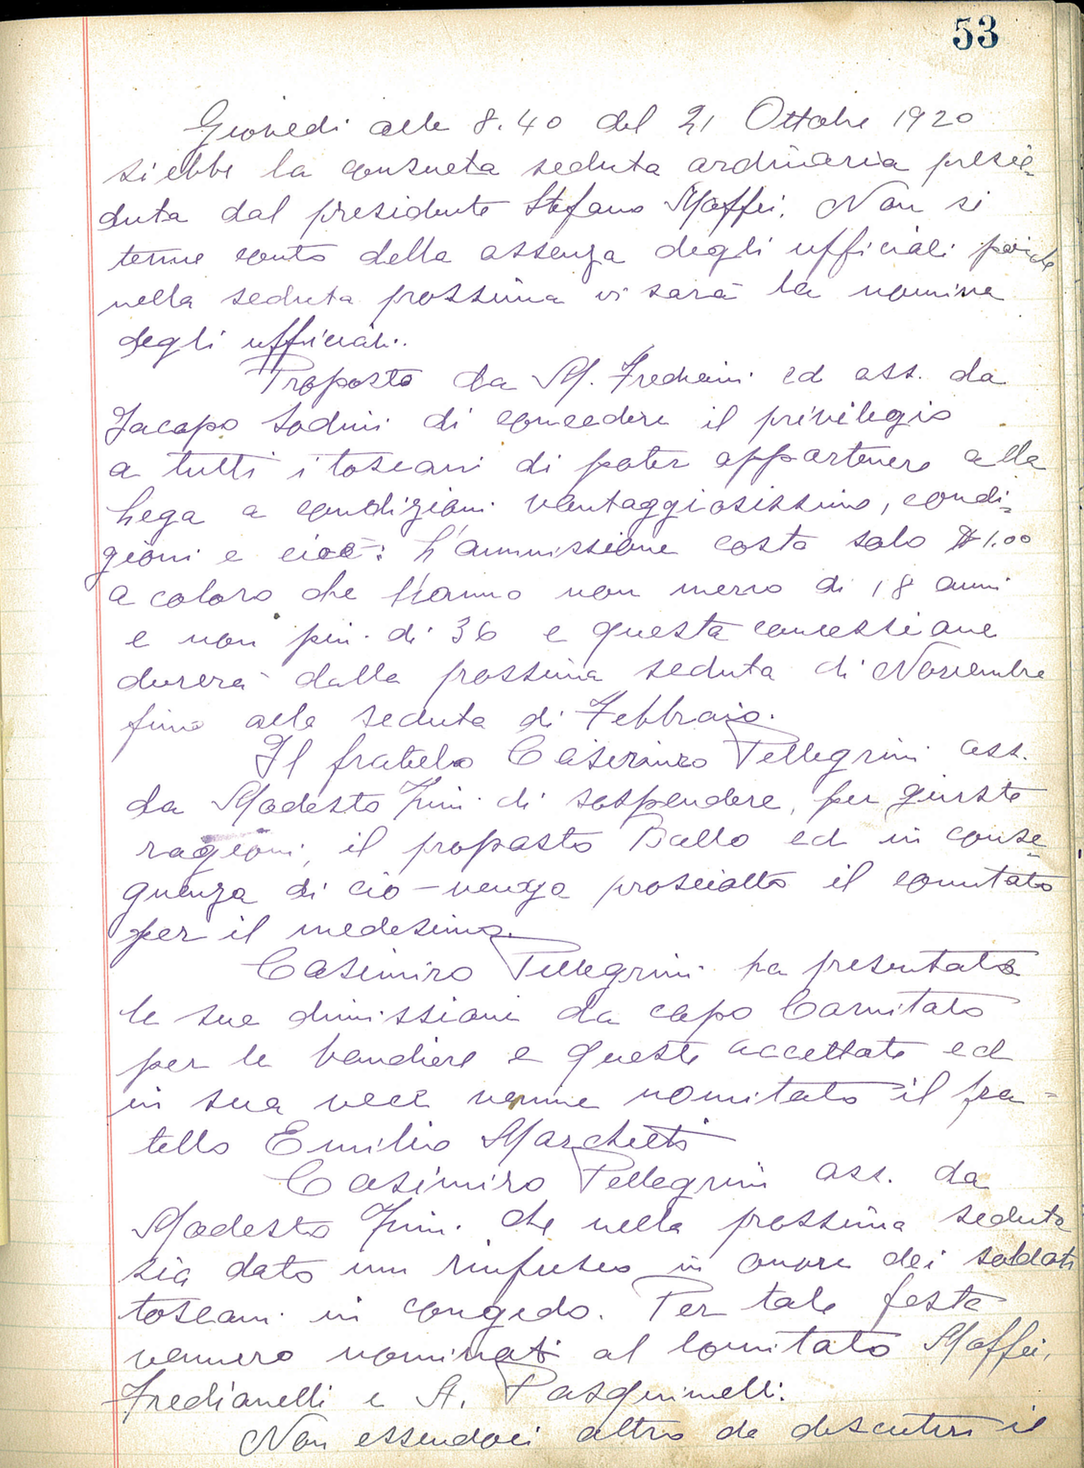 53
Giovedi alle 8.40 del 21 Ottobre 1920
si ebbe la consueta seduta ordinaria presie-
duta dal presidente Stefano Maffei. Non si
tenne conto della assenza degli ufficiali poiche
nella seduta prossima vi sarà la nomina
degli ufficiali.
Proposto da M. Frediani ed ass. da
Jacopo Sodini di concedere il privilegio
a tutti i toscani di poter appartenere alla
Lega a condizioni vantaggiosissime, condi-
zioni e cioè: L'ammissione costa solo $1.00
a coloro che hanno non meno di 18 anni
e non piu di 36 e questa concessione
durerà dalla prossima seduta di Novembre
fino alla seduta di Febbraio.
Il fratello Casimiro Pellegrini ass.
da Modesto Juni di sospendere, per giuste
ragioni, il proposto Ballo ed in conse-
guenza di ciò - venga prosciolto il comitato
per il medesimo.
Casimiro Pellegrini ha presentato
le sue dimissioni da capo Comitato
per le bandiere e queste accettate ed
in sua vece venne nomitato il fra-
tello Emilio Marchetti
Casimiro Pellegrini ass. da
Modesto Juni che nella prossima seduta
sia dato un rinfresco in onore dei soldati
toscani in congedo. Per tale festa
vennero nominati al comitato Maffei,
Fredianelli e A. Pasquinelli.
Non essendoci altro da discutere il